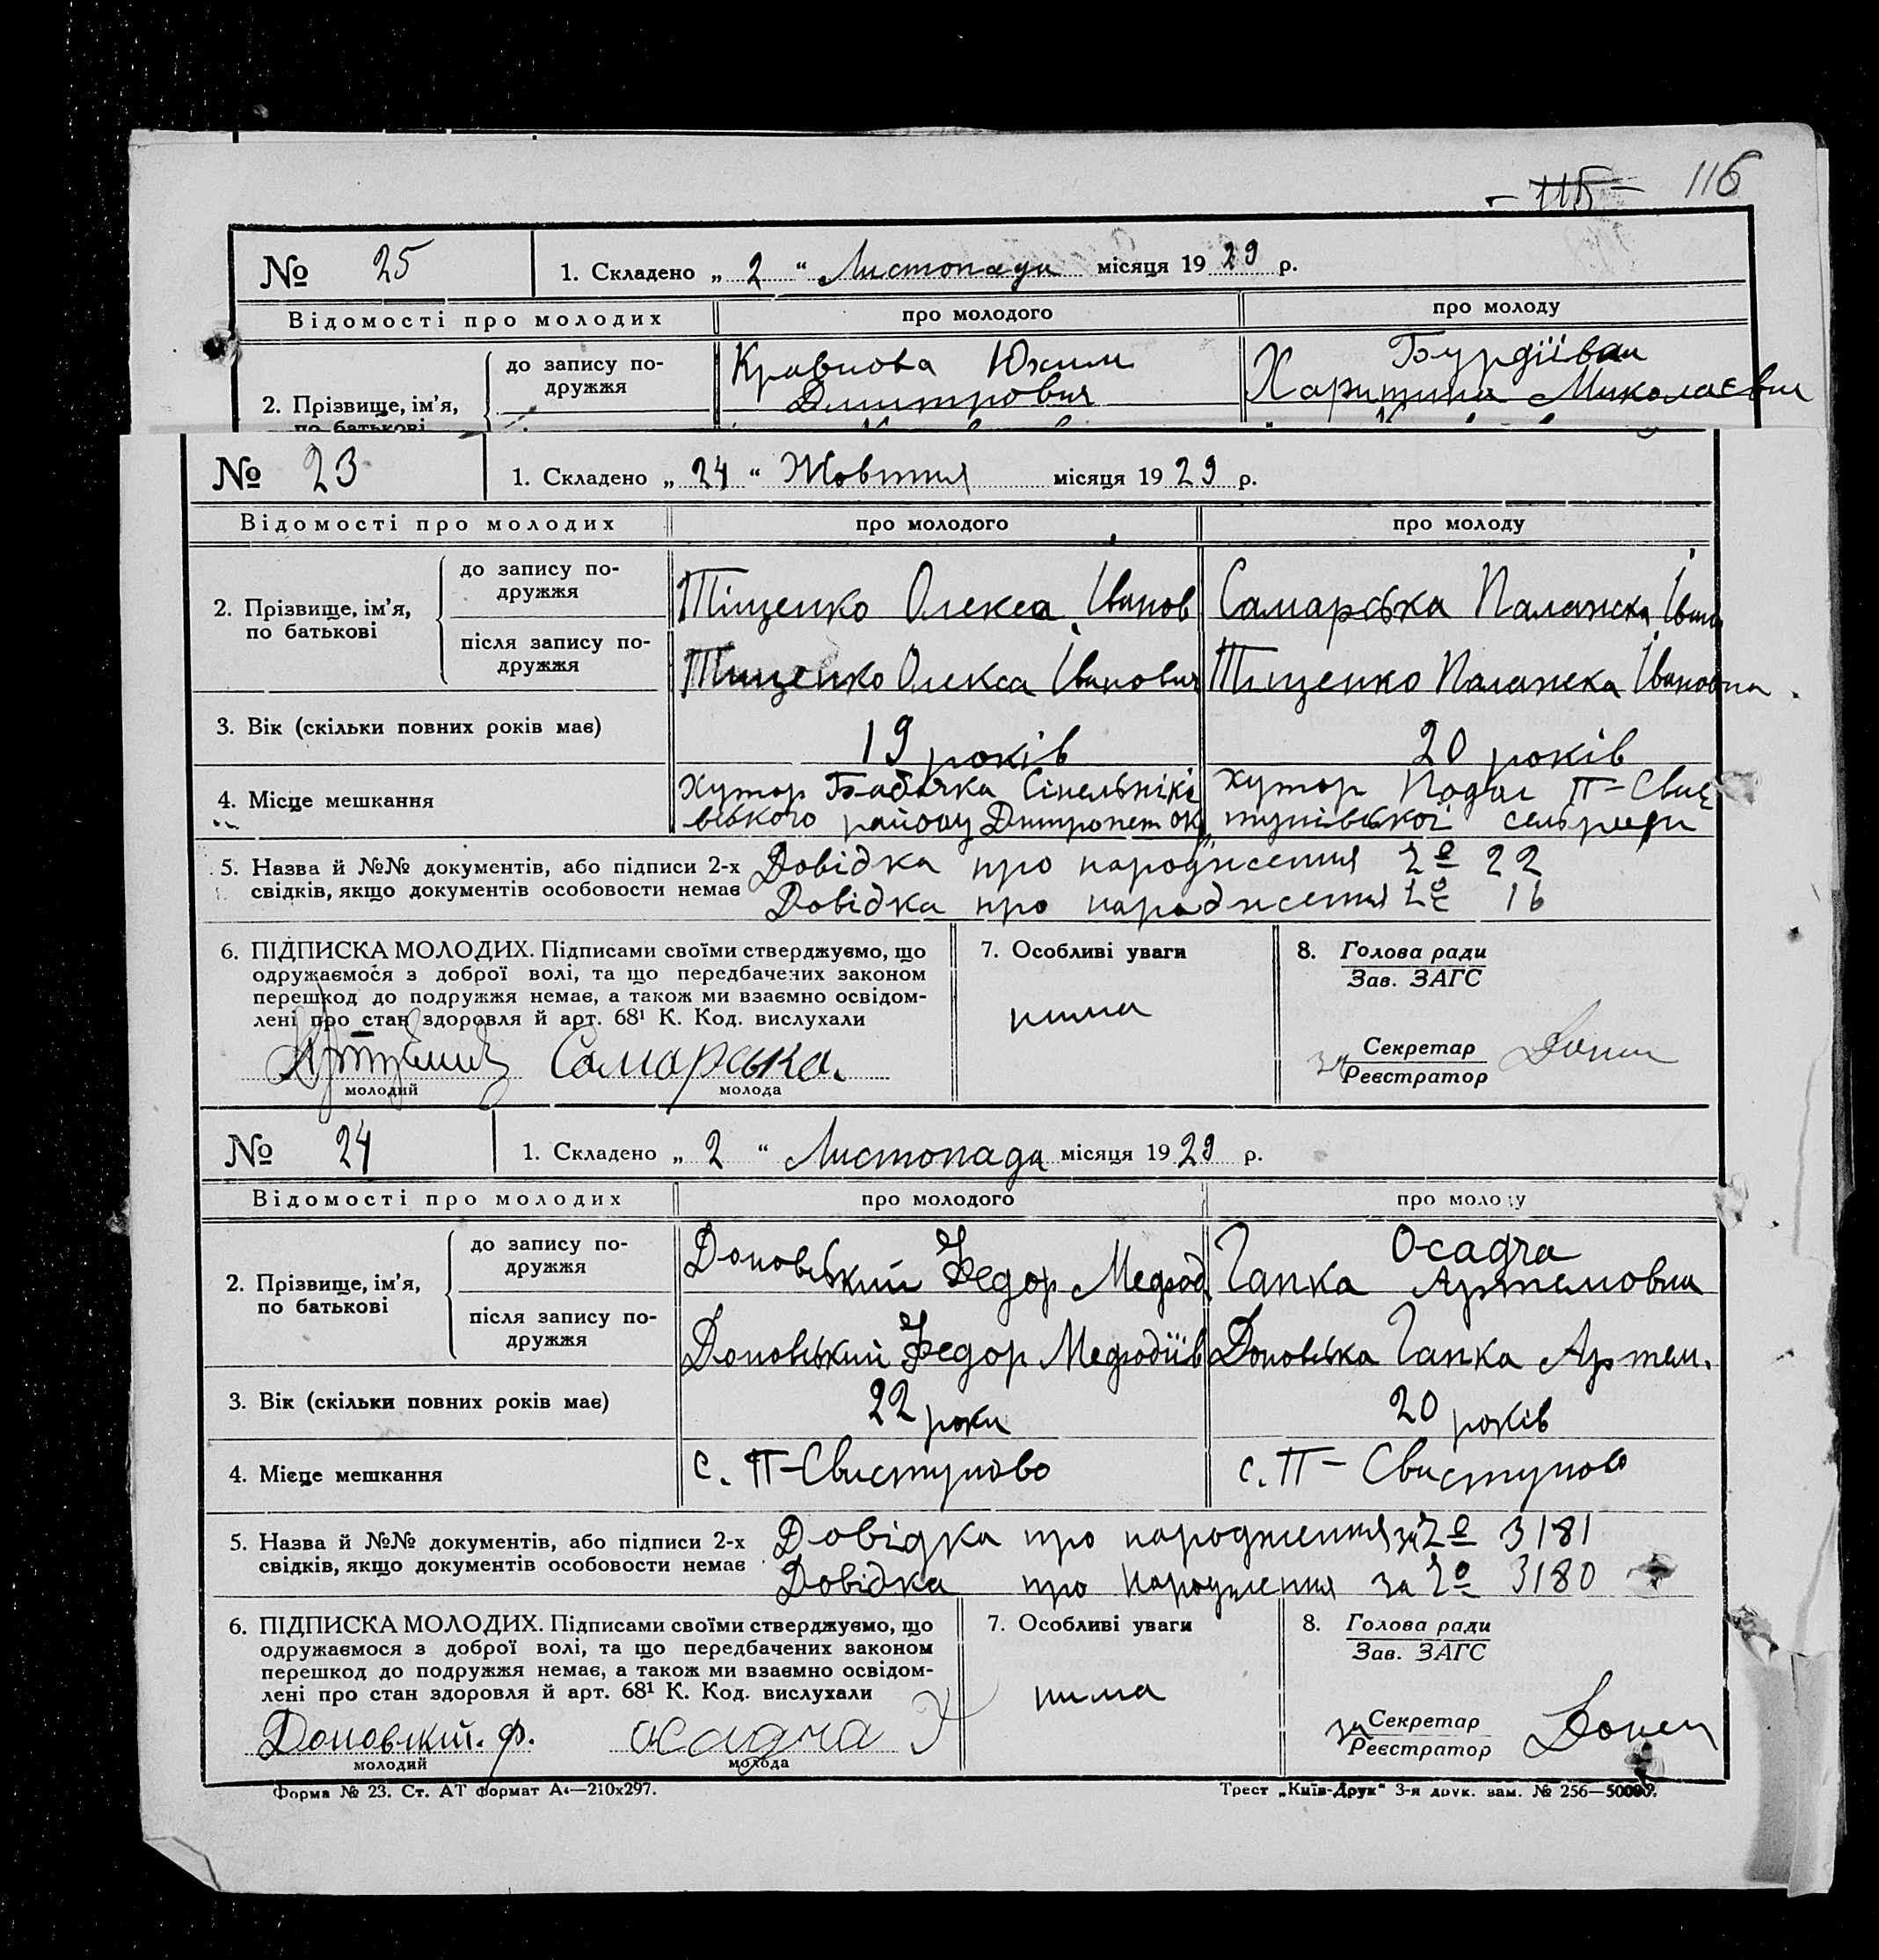 - 115 - 116
№ 25 1. Складено „ 2 “ Листопада місяця 19 29 р.
Відомості про молодих про молодого про молоду
2. Прізвище, ім’я, по батькові
до запису по-
дружжя
Юхим
Дмитрович
Харитина Миколаєвна
№ 23 1. Складено „ 24 “ Жовтня місяця 19 29 р.
Відомості про молодих про молодого про молоду
2. Прізвище, ім’я,
по батькові
до запису по-
дружжя
Тіщенко Олекса Іванов Самарська Палажка Іван
після запису по-
дружжя
Тищенко Олекса Іванович Тищенко Палажка Івановна
3. Вік (скільки повних років має) 19 років 20 років
4. Місце мешкання
Хутор Бабачка Сінельникі
вського району Днпропет ок
хутор П-Свис
тунівської сельради
5. Назва й №№ документів, або підписи 2-х Довідка про народження № 22
свідків, якщо документів особовости немає Довідка про народження № 16
6. ПІДПИСКА МОЛОДИХ. Підписами своїми стверджуємо, що
одружаємося з доброї волі, та що передбачених законом
перешкод до подружжя немає, а також ми взаємно освідом-
лені про стан здоровля й арт. 68¹ К. Код. вислухали
Самарська.
молодий молода
7. Особливі уваги
нима
8. Голова ради
Зав. ЗАГС
за Секретар
Реєстратор
Донец
№ 24 1. Складено „ 2 “ Листопада місяця 19 29 р.
Відомості про молодих про молодого про молоду
2. Прізвище, ім’я,
по батькові
до запису по-
дружжя
Доновський Федор Мефод
Осадча
Гапка Артемовна
після запису по-
дружжя
Доновський Федор Мефодіїв Доновська Гапка Артем.
3. Вік (скільки повних років має) 22 роки 20 років
4. Місце мешкання с. П-Свистуново с. П-Свистуново
5. Назва й №№ документів, або підписи 2-х Довідка про народження за № 3181
свідків, якщо документів особовости немає Довідка про народження за № 3180
6. ПІДПИСКА МОЛОДИХ. Підписами своїми стверджуємо, що
одружаємося з доброї волі, та що передбачених законом
перешкод до подружжя немає, а також ми взаємно освідом-
лені про стан здоровля й арт. 68¹ К. Код. вислухали
Доновский. Ф. осадча
молодий молода
7. Особливі уваги
нима
8. Голова ради
Зав. ЗАГС
за Секретар
Реєстратор
Донец
Форма № 23. Ст. АТ формат А₄—210х297. Трест „Київ-Друк“ 3-я друк. зам. № 256—50000.